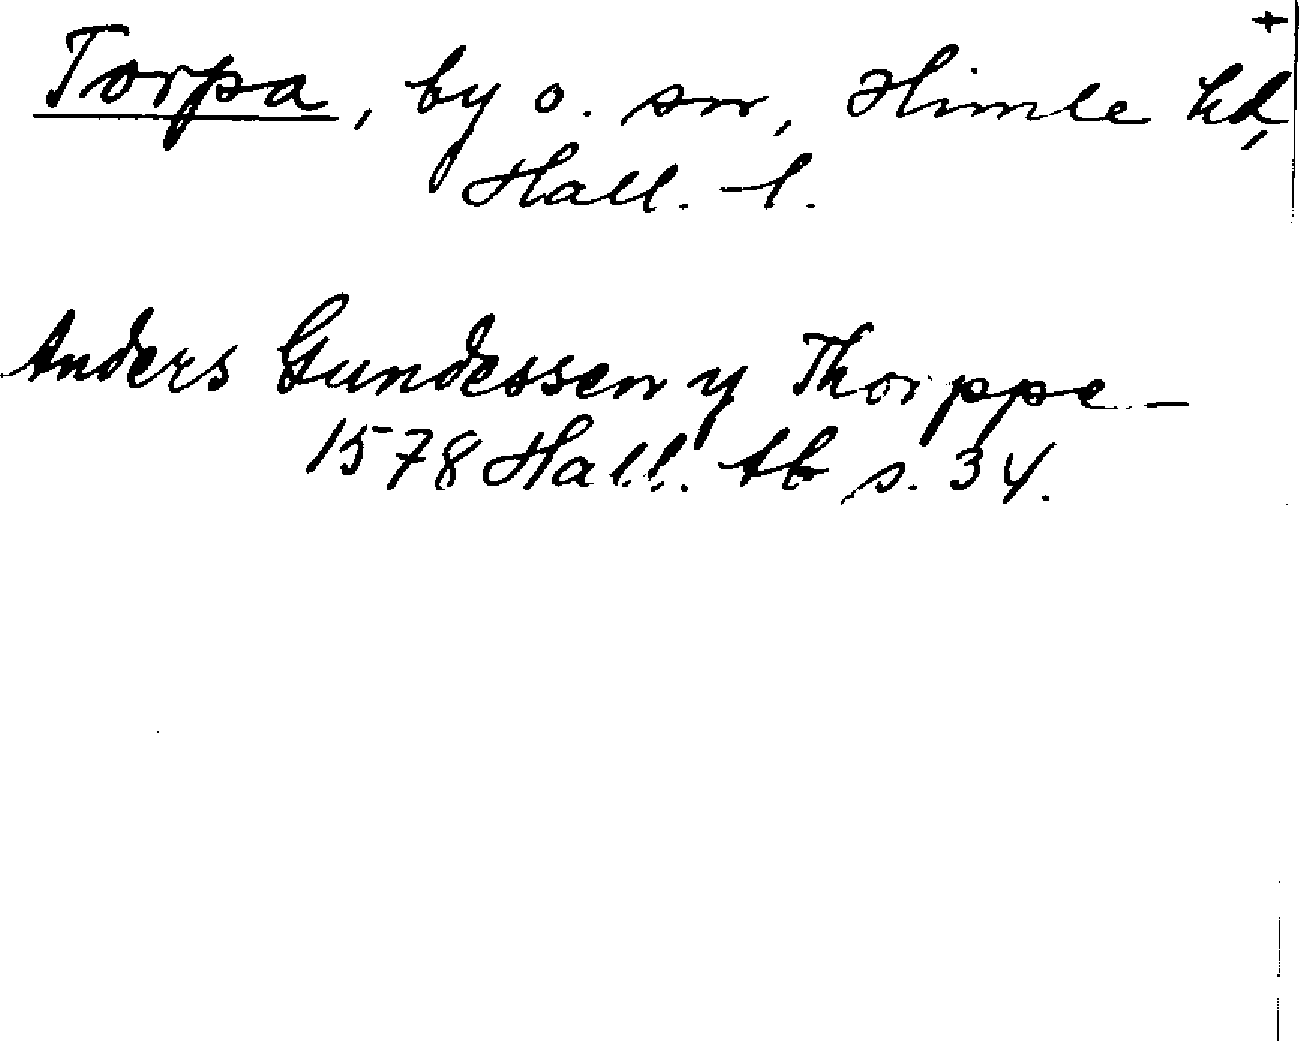 +
Torpa, by o. sn, Himle hd,
Hall. l.
Anders Gundessen y Thorppe –
1578 Hall. tb s. 34.